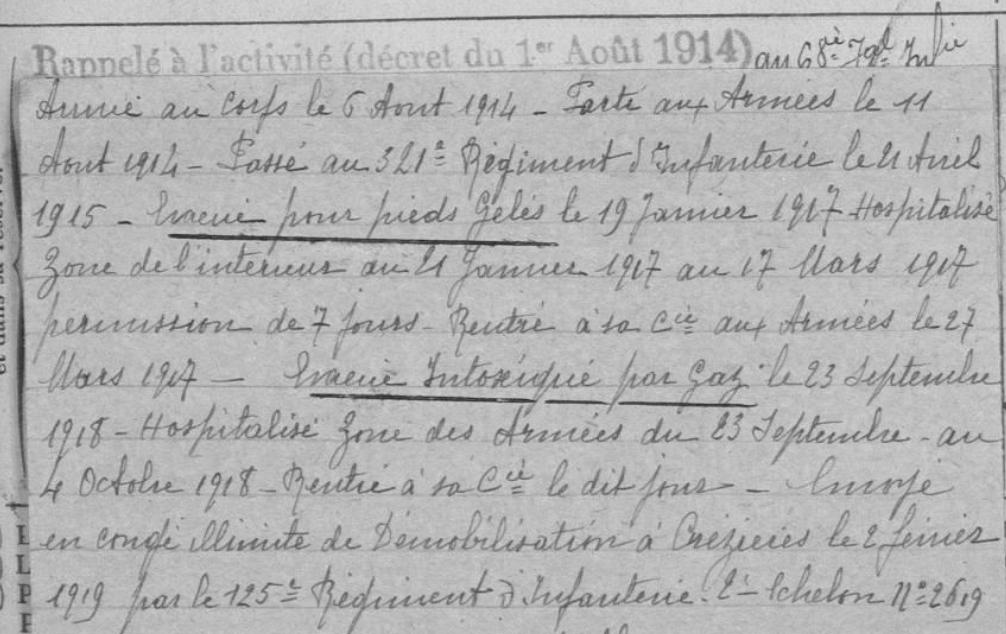 Rappelé à l'activité (décret du 1er Août 1914) au 68e Rgt Inf ie
Arrivé au Corps le 6 Aout 1914 - Parti aux Armées le 11
Aout 1914 - Passé au 321e Régiment d'Infanterie le 21 Avril
1915 - Evacué pour pieds Gelés le 19 Janvier 1917 Hospitalisé
Zone de l'interieur du 21 Janvier 1917 au 17 Mars 1917
permission de 7 jours - Rentré à sa Cie aux Armées le 27
Mars 1917 — Evacué Intoxiqué par Gaz le 23 Septembre
1918 - Hospitalisé Zone des Armées du 23 Septembre - au
4 Octobre 1918 - Rentré à sa Cie le dit jour - Envoyé
en congé illimité de Démobilisation à le 2 février
1919 par le 125e Régiment d'Infanterie. 2e Echelon No 2619
et dans sa réserve.
E
L
P